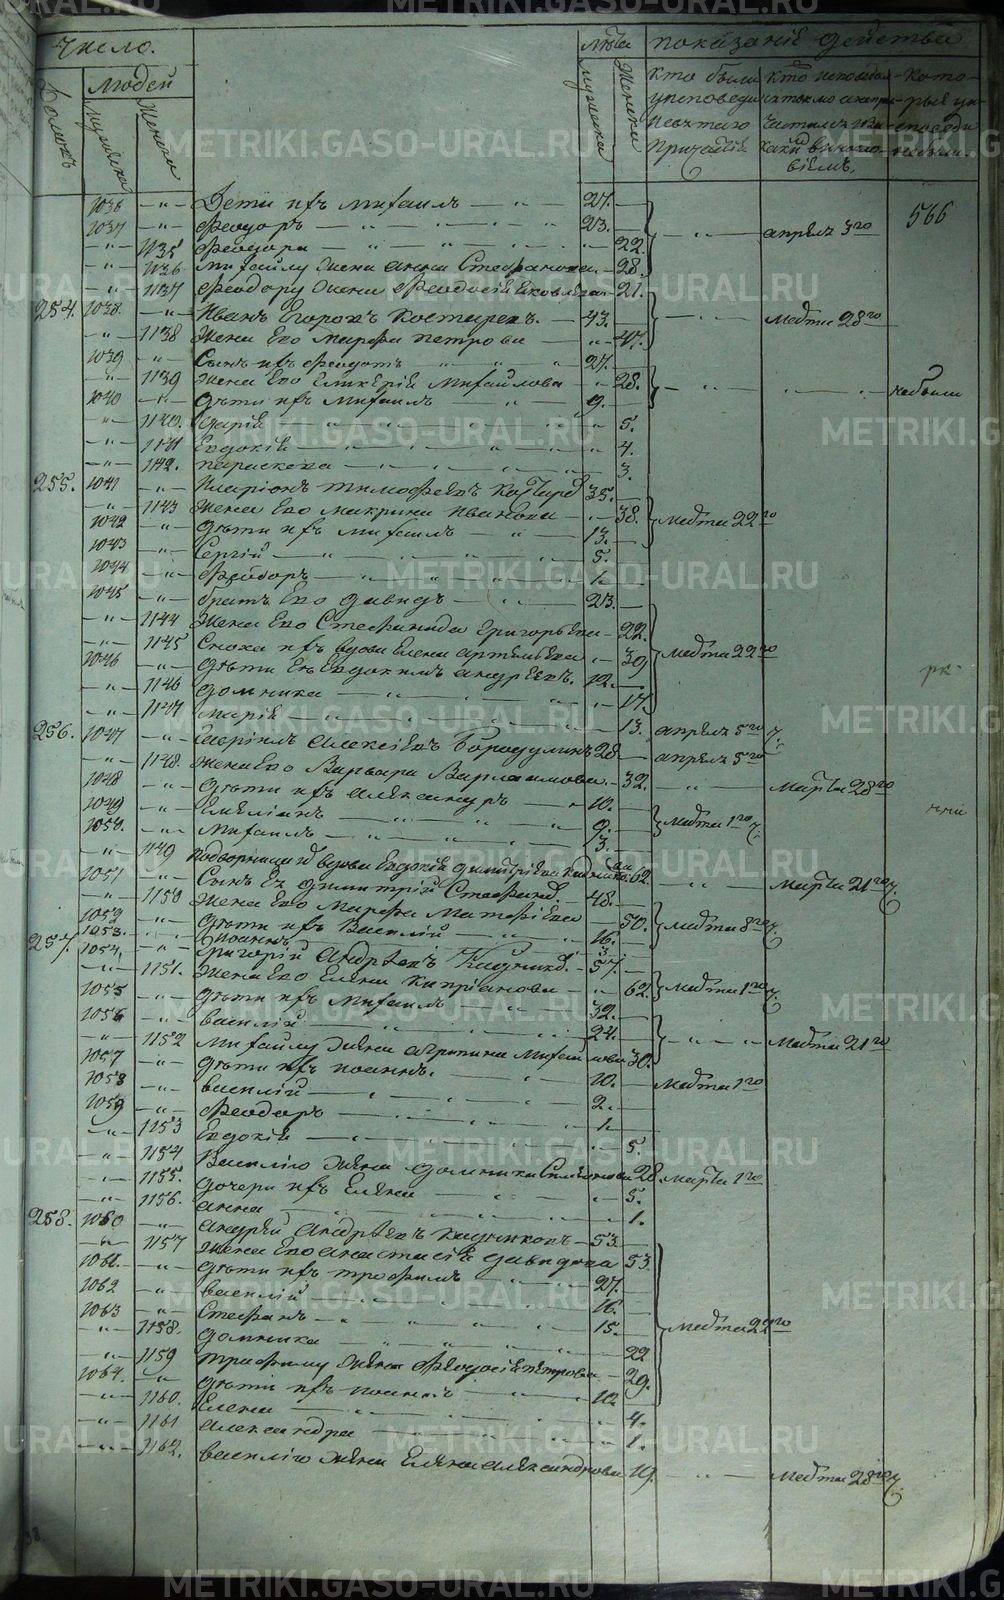 Число. Лѣта показаніе действа
Домовъ людей мужеска женска мужеска женска
кто были у исповеди и святаго Причастія
кто исповедались токмо а не причастились и за какимъ винословіемъ.
которые у исповеди не были.
566
1036 дети ихъ михаилъ 27.
1037 Феодоръ 23. апреля 3го
1135 Феодора 22.
1136 михаилу жена анна Стефанова 28.
1137 Феодору жена Феодосія Яковлева 21.
254. 1038. Иванъ Егоровъ Костаревъ. 43. марта 28го
1138 жена Его марфа петрова 47.
1039 Сынъ ихъ Феодотъ 27.
1139 жена Его Гликерія михайлова 28. не были
1040 дети ихъ михаилъ 9.
1140. дарія 5.
1141 Евдокія 4.
1142. параскева 3.
255. 1041 Иларіонъ тимофеевъ Костарев 35.
1143 жена Его макрина иванова 38. марта 22го
1042 дети ихъ михаилъ 13.
1043 Сергій 5.
1044 Феодоръ 1.
1045 братъ Его давидъ 23.
1144 жена Его Стефанида григорьева 22.
1145 Сноха ихъ вдова Елена артемьева 39 марта 22го
1046 дети Ея Евдокимъ андреевъ. 12.
1146 домника 17.
1147 марія 13. апреля 5го
256. 1047 гавріилъ алексіевъ Бородулинъ 28 апреля 5го
1148. жена Его Варвара Варламова 32. марта 28го
1048 дети ихъ александръ 10.
1049 Емеліанъ 9. марта 1го
1050. михаилъ 3.
1149 подворница их вдова Евдокія димитріева 62. марта 21го
1051 Сынъ Ея димитрій Стефанов. 48.
1150 жена Его марфа матфіева 50. марта 8го
1052 дети ихъ Василій 16.
1053. іоаннъ 3
257. 1054. григорій андреевъ Кадников. 57.
1151. жена Его Елена кипріанова 62. марта 1го
1055 дети ихъ михаилъ 32.
1056 василій 24.
1152 михайлу жена агрипина михайлова 30. марта 21го
1057 дети ихъ іоаннъ. 10. марта 1го
1058 василій 2.
1059 Феодоръ 1.
1153 Евдокія 5.
1154 Василію жена домника Симеонова 28. марта 1го
1155. дочери ихъ Елена 5.
1156. анна 1.
258. 1060 андрей андреевъ кадниковъ 53.
1157 жена Его анастасія давидова 53.
1061. дети ихъ трофимъ 27.
1062 василій 16.
1063 Стефанъ 15. марта 22го
1158. домника 22
1159 трофиму жена Феодосія петрова 29.
1064. дети ихъ іоаннъ 10
1160. Елена 4.
1161 александра 1.
1162. василію жена Елена александрова 19. марта 28го